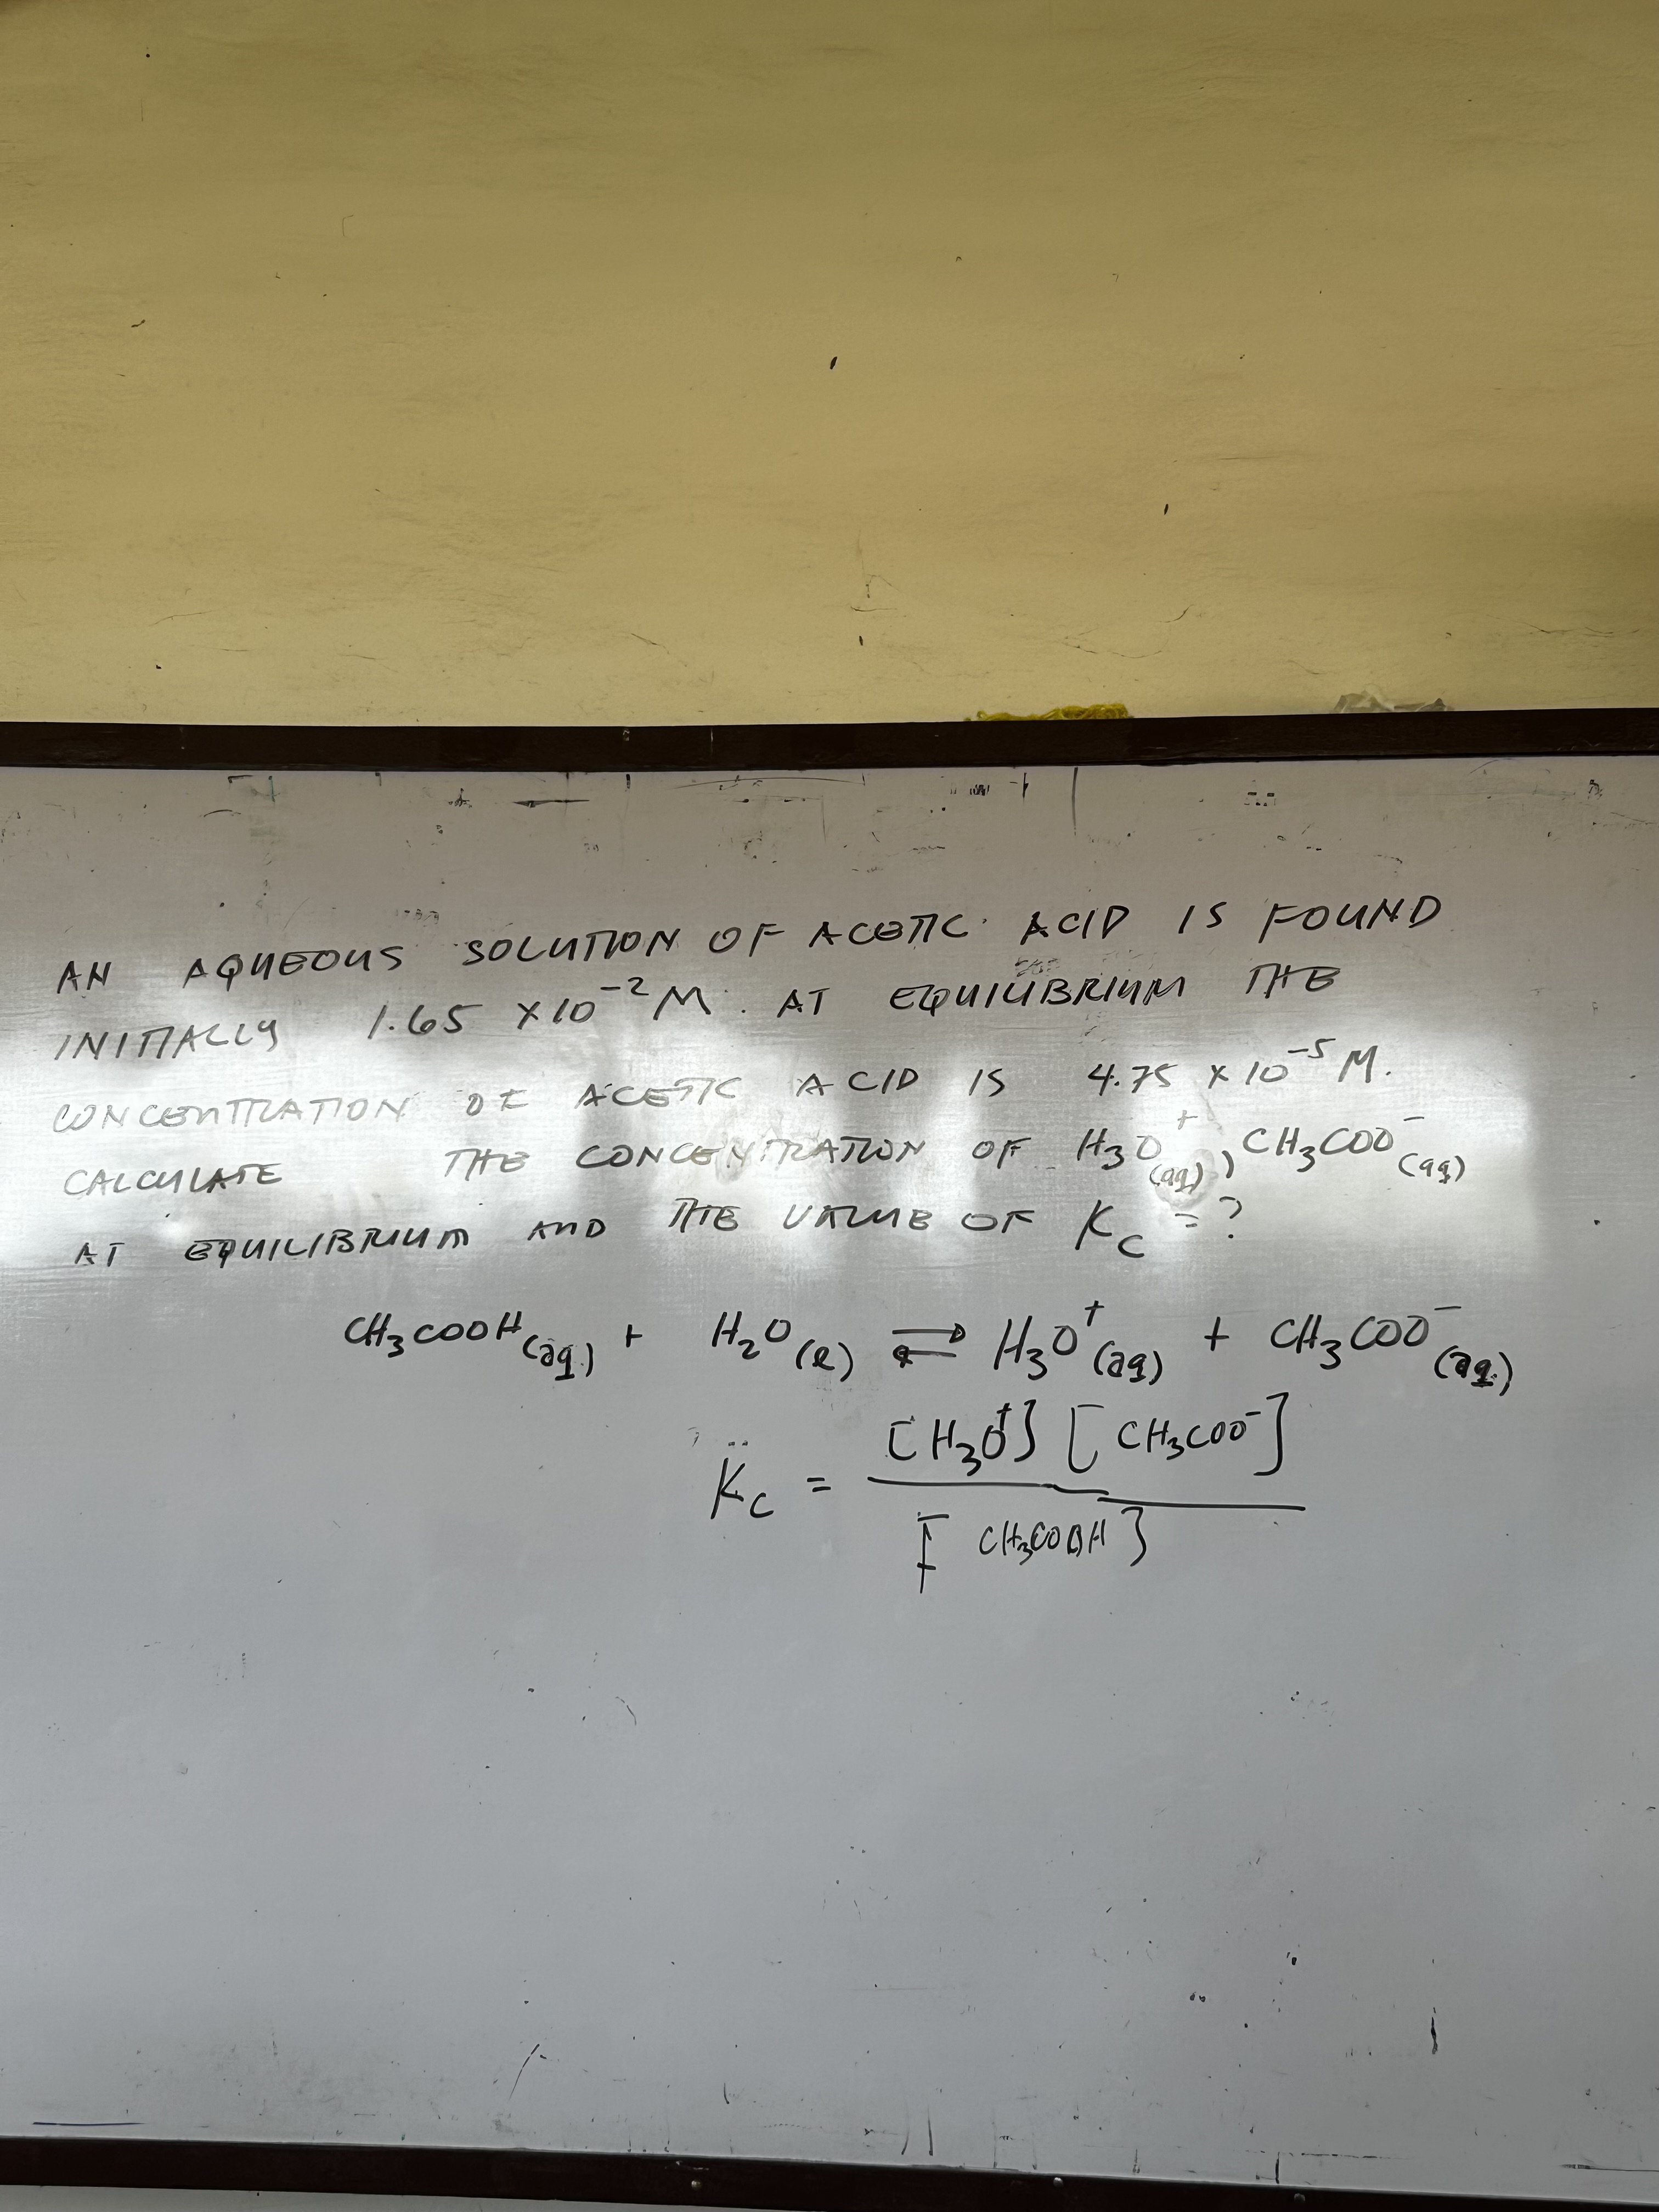 AN AQUEOUS SOLUTION OF ACETIC ACID IS FOUND
INITIALLY 1.65 ×10⁻² M. AT EQUILIBRIUM THE
CONCENTRATION OF ACETIC ACID IS 4.75 ×10⁻⁵ M.
CALCULATE THE CONCENTRATION OF H₃O⁺(aq), CH₃COO⁻(aq)
AT EQUILIBRIUM AND THE VALUE OF Kc =?
CH₃COOH(aq) + H₂O(l) ⇌ H₃O⁺(aq) + CH₃COO⁻(aq)
Kc = [H₃O⁺] [CH₃COO⁻]
[CH₃COOH]